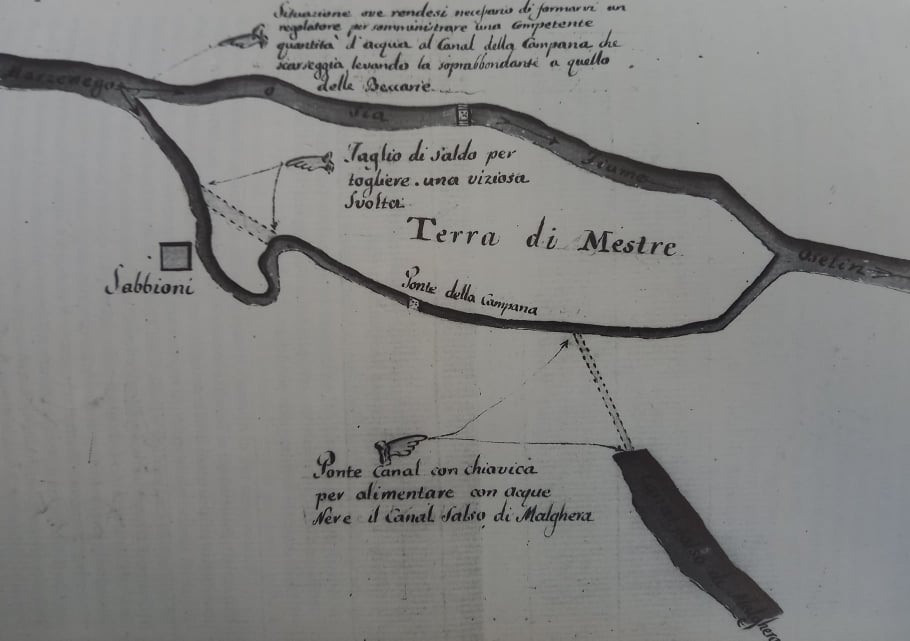 Situazione ove rendesi necessario di formarvi un
regolatore per somministrare una competente
quantità d'acqua al Canal della Campana che
scarseggia levando la soprabbondante a quello
delle Beccarie.
Marzenego
o
sia
Fiume
Oselin
Taglio di saldo per
togliere una viziosa
Svolta.
Terra di Mestre
Sabbioni
Ponte della Campana
Ponte Canal con chiavica
per alimentare con acque
Neve il Canal Salso di Malghera
Canal Salso di Malghera